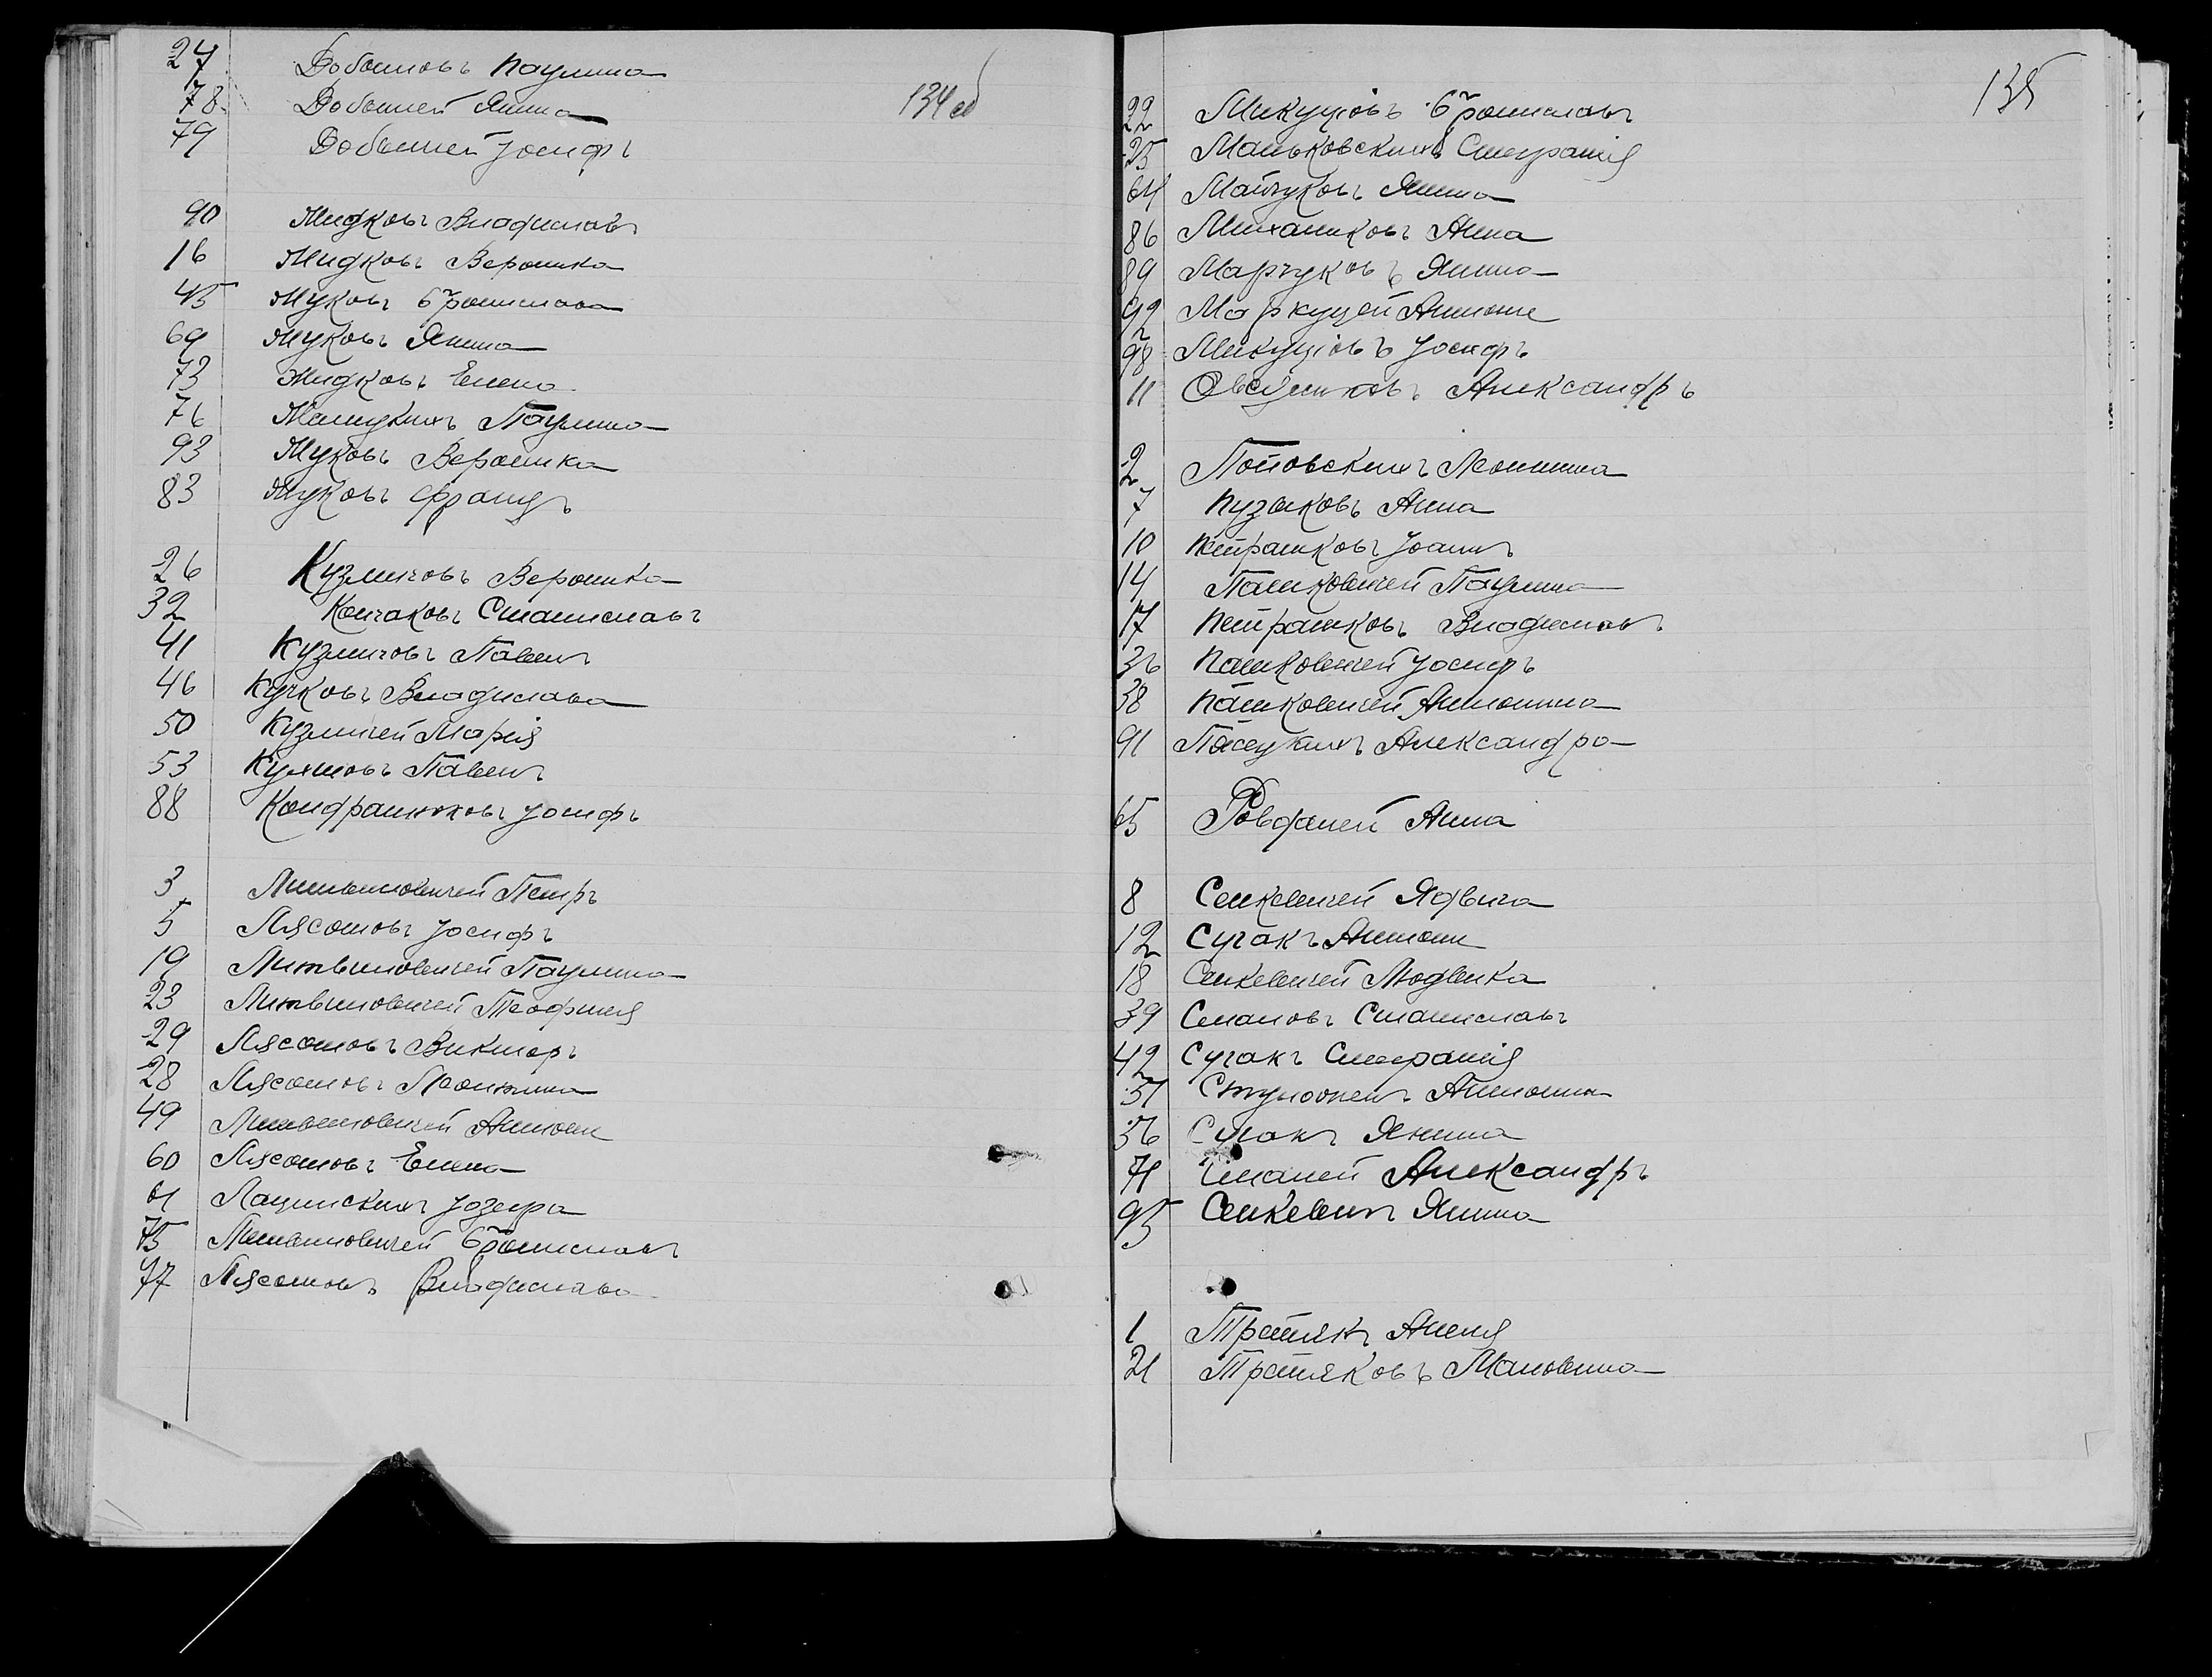 27 Добошовъ Паулина
134 об
78 Добошей Янина
79 Добошей Іосифъ
90 Жидковъ Владиславъ
16 Жидковъ Вероника
45 Жуковъ Бронислава
69 Жуковъ Янина
73 Жидковъ Елена
76 Паулина
93 Жуковъ Вероника
83 Жуковъ Францъ
26 Кузмичовъ Вероника
32 Кончаковъ Станиславъ
41 Кузмичовъ Павелъ
46 Кучковъ Владислава
50 Кузмичей Марія
53 Павелъ
88 Кондратюковъ Іосифъ
3 Литвиновичей Петръ
5 Лясотовъ Іосифъ
19 Литвиновичей Паулина
23 Литвиновичей Теофилія
29 Лясотовъ Викторъ
28 Лясотовъ Леонтина
49 Литвиновичей Антони
60 Лясотовъ Елена
61 Лацинскихъ Іозефа
75 Литвиновичей Брониславъ
77 Лясотовъ Владислава
135
22 Микуцовъ Брониславъ
25 Маньковскихъ Стефанія
64 Майчуковъ Янина
86 Миханиковъ Анна
89 Марчуковъ Янина
92 Маркуцей Антони
98 Микуціовъ Іосифъ
11 Александръ
2 Поповскихъ Леонина
7 Пузыковъ Анна
10 Петрашковъ Іоаннъ
14 Пашкевичей Паулина
17 Петрашковъ Владиславъ
36 Пашкевичей Іосифъ
38 Пашкевичей Антонина
91 Пасецкихъ Александра
65 Ровданей Анна
8 Сенкевичей Ядвига
12 Сугакъ Антони
18 Сенкевичей Людвика
39 Семановъ Станиславъ
42 Сугакъ Стефанія
51 Антонина
56 Сугакъ Янина
71 Александръ
95 Сенкевичъ Янина
1 Третякъ Анеля
21 Третяковъ Мальвина